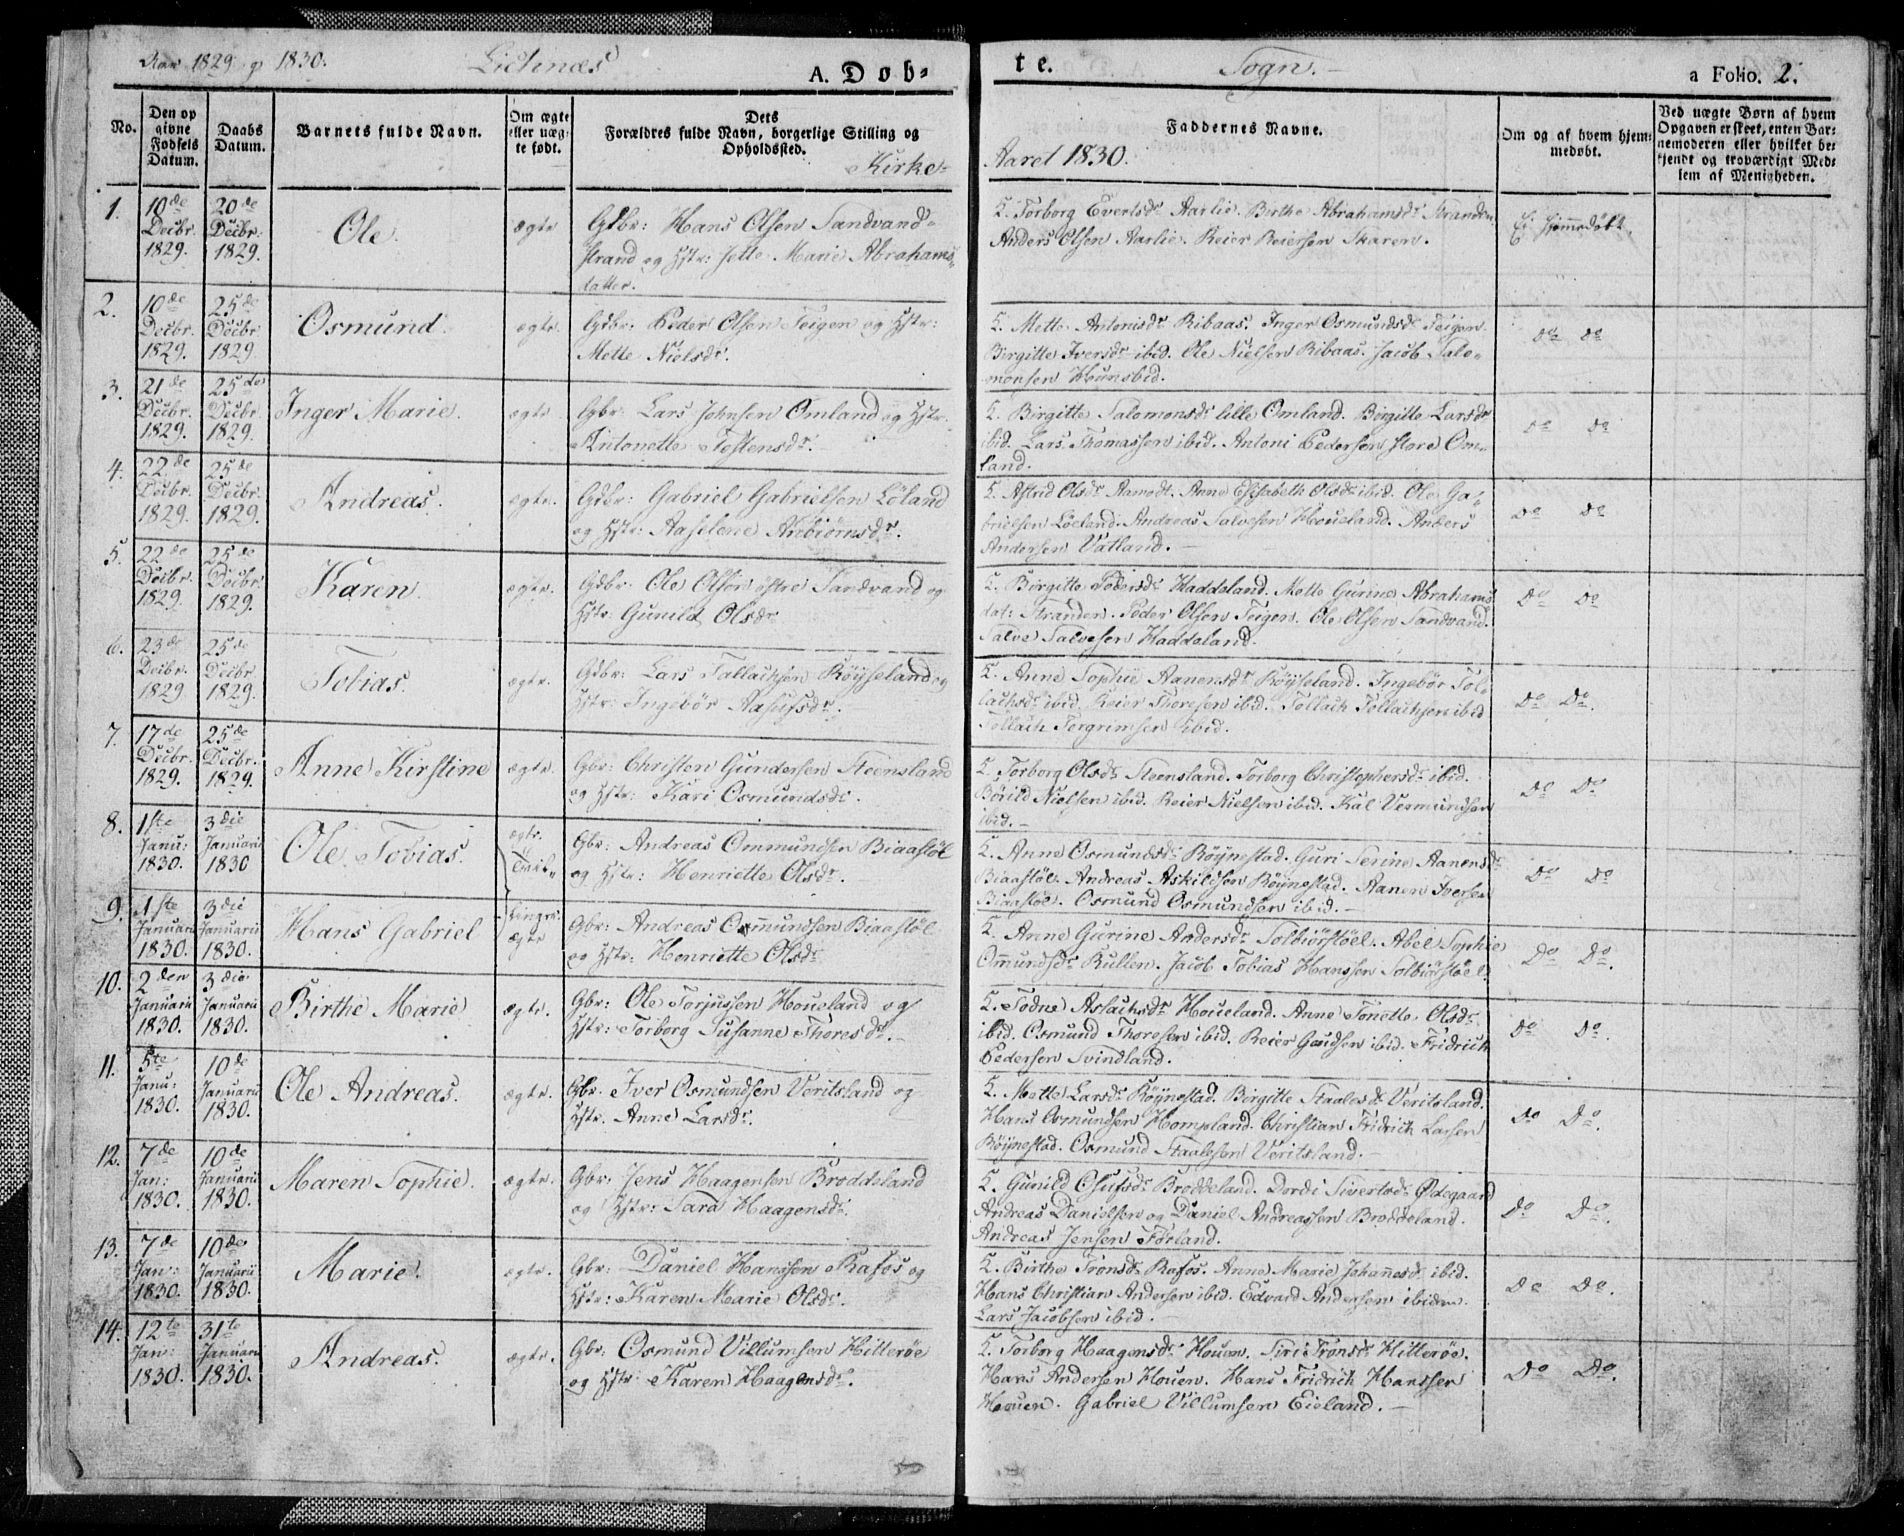 1829 og 1830.
A. Døb=
te.
Sogn.
a Folio. 2.
No.
Den op
givne
Fødsels
Datum.
Daabs
Datum.
Barnets fulde Navn.
Om ægte
eller uæg=
te født.
Dets
Forældres fulde Navn, borgerlige Stilling og
Opholdssted.
Kirke=
Aaret 1830.
Faddernes Navne.
Om og af hvem hjem=
medøbt.
Ved uægte Børn af hvem
Opgaven er skeet, enten Bar=
nemoderen eller hvilket be=
kjendt og troværdigt Med=
lem af Menigheden.
1. 10de Decbr. 1829. 20de Decbr. 1829. Ole. ægte
Gdbr: Hans Olsen Sandvand=
strand og Hstr: Jette Marie Abrahams=
datter.
F. Torborg Evertsdr Aarlie. Berthe Abrahamsdr Stranden
Anders Olsen Aarlie. Reier Reiersen Skaren.
Ei hjemmedøbt.
2. 10de Decbr. 1829. 25de Decbr. 1829. Osmund. ægte.
Gdbr: Peder Olsen Teigen og Hstr:
Mette Nielsdr.
F. Mette Antonisdr Ribaas. Inger Osmundsdr Teigen.
Birgitte Iversdr ibid. Ole Nielsen Ribaas. Jacob Salo=
monsen Hunsbid.
Do Do
3. 21de Decbr. 1829. 25de Decbr 1829. Inger Marie. ægte.
Gbr: Lars Johnsen Omland og Hstr.
Antonette Tostensdr.
F. Birgitte Salomonsdr lille Omland. Birgitte Larsdr
ibid. Lars Thomassen ibid. Antoni Pedersen store Om=
land.
Do Do
4. 22de Decbr. 1829. 25de Decbr. 1829. Andreas. ægte.
Gdbr: Gabriel Gabrielsen Löland
og Hstr: Aaselene Anbiörnsdr.
F. Astrid Olsdr Aamodt. Anne Elisabeth Olsdr ibid. Ole Ga=
brielsen Löeland. Andreas Salvesen Houeland. Anders
Andersen Vatland.
Do Do
5. 22de Decbr. 1829. 25de Decbr. 1829. Karen. ægte.
Gdbr: Ole Olsen östre Sandvand og
Hstr: Gunild Olsdr
F. Birgitte Pedersdr Haddeland. Mette Gurine Abrahams
dat: Stranden. Peder Olsen Teigen. Ole Olsen Sandvand.
Salve Salvesen Haddeland.
Do Do
6. 23de Decbr. 1829 25de Decbr 1829. Tobias. ægte.
Gdbr: Lars Tallachsen Röyseland og
Hstr: Ingebör Aasufsdr.
F. Anne Sophie Aanensdr Röyseland. Ingebör Tol=
lachsdr ibid. Reier Thoresen ibid. Tollach Tollachsen ibid
Tollach Torgrimsen ibid.
Do Do.
7. 17de Decbr. 1829. 25de Decbr. 1829. Anne Kirstine ægte.
Gbr: Christen Gundersen Steensland
og Hstr: Kari Osmundsdr.
F. Torborg Olsdr Steensland. Torborg Christophersdr ibid.
Börild Nielsen ibid. Reier Nielsen ibid. Kal Vermundsen
ibid.
Do Do.
8. 1ste Janu: 1830. 3die Januarii 1830 Ole Tobias. ægte. Tvil=
Gbr: Andreas Ommundsen Biaastöl
og Hstr: Henriette Olsdr.
F. Anne Osmundsdr Röynestad. Guri Serine Aanensdr
Biaastöl. Andreas Askildsen Röynestad. Aanen Iversen
Biaastöl. Osmund Osmundsen ibid.
Do Do
9. 1ste Januarii 1830. 3die Januarii 1830. Hans Gabriel lingre. ægte
Gbr: Andreas Ommundsen Biaastöl
og Hstr: Henriette Olsdr.
F. Anne Gurine Andersdr Solbiörstöel. Abel Sophie
Ommundsdr Kullen. Jacob Tobias Hanssen Solbiörstöel.
Do Do.
10. 2den Januarii 1830. 3die Januarii 1830. Birthe Marie ægte.
Gbr: Ole Torjussen Houeland og
Hstr: Torborg Susanne Thoresdr.
F. Todne Aslachsdr Houeland. Anne Tonette Olsdr
ibid. Osmund Thoresen ibid. Reier Gundsen ibid. Fridrich
Pedersen Svindland.
Do Do.
11. 5te Janu: 1830. 10de Januarii 1830. Ole Andreas. ægte.
Gbr. Iver Osmundsen Veritsland og
Hstr. Anne Larsdr.
F. Mette Larsdr Röynestad. Birgitte Staalesdr Veritsland.
Hans Osmundsen Hompland. Christian Fridrich Larsen
Röynestad. Osmund Staalesen Veritsland.
Do Do.
12. 7de Jan: 1830. 10de Januarii 1830. Maren Sophie. ægte.
Gbr: Jens Haagensen Broddeland
og Hstr: Sara Haagensdr.
F. Gunild Osufsdr Broddeland. Dordi Sivertsdr Ödegaard
Andreas Danielsen og Daniel Andreassen Broddeland.
Andreas Jensen Förland.
Do Do.
13. 7de Jan: 1830. 10de Januarii 1830. Marie. ægte.
Gbr: Daniel Hanssen Rafos og
Hstr: Karen Marie Olsdr.
F. Birthe Tronsdr Rafos. Anne Marie Johannesdr ibid.
Hans Christian Andersen ibid. Edvard Andersen ibidem.
Lars Jacobsen ibid.
Do Do.
14. 12te Jan: 1830. 31te Januarii 1830. Andreas. ægte.
Gbr: Osmund Villumsen Hitteröe
og Hstr: Karen Haagensdr.
F. Torborg Haagensdr Houen. Siri Tronsdr Hitteröe.
Hans Andersen Houen. Hans Fridrich Hanssen
Houen. Gabriel Villumsen Eieland.
Do Do.